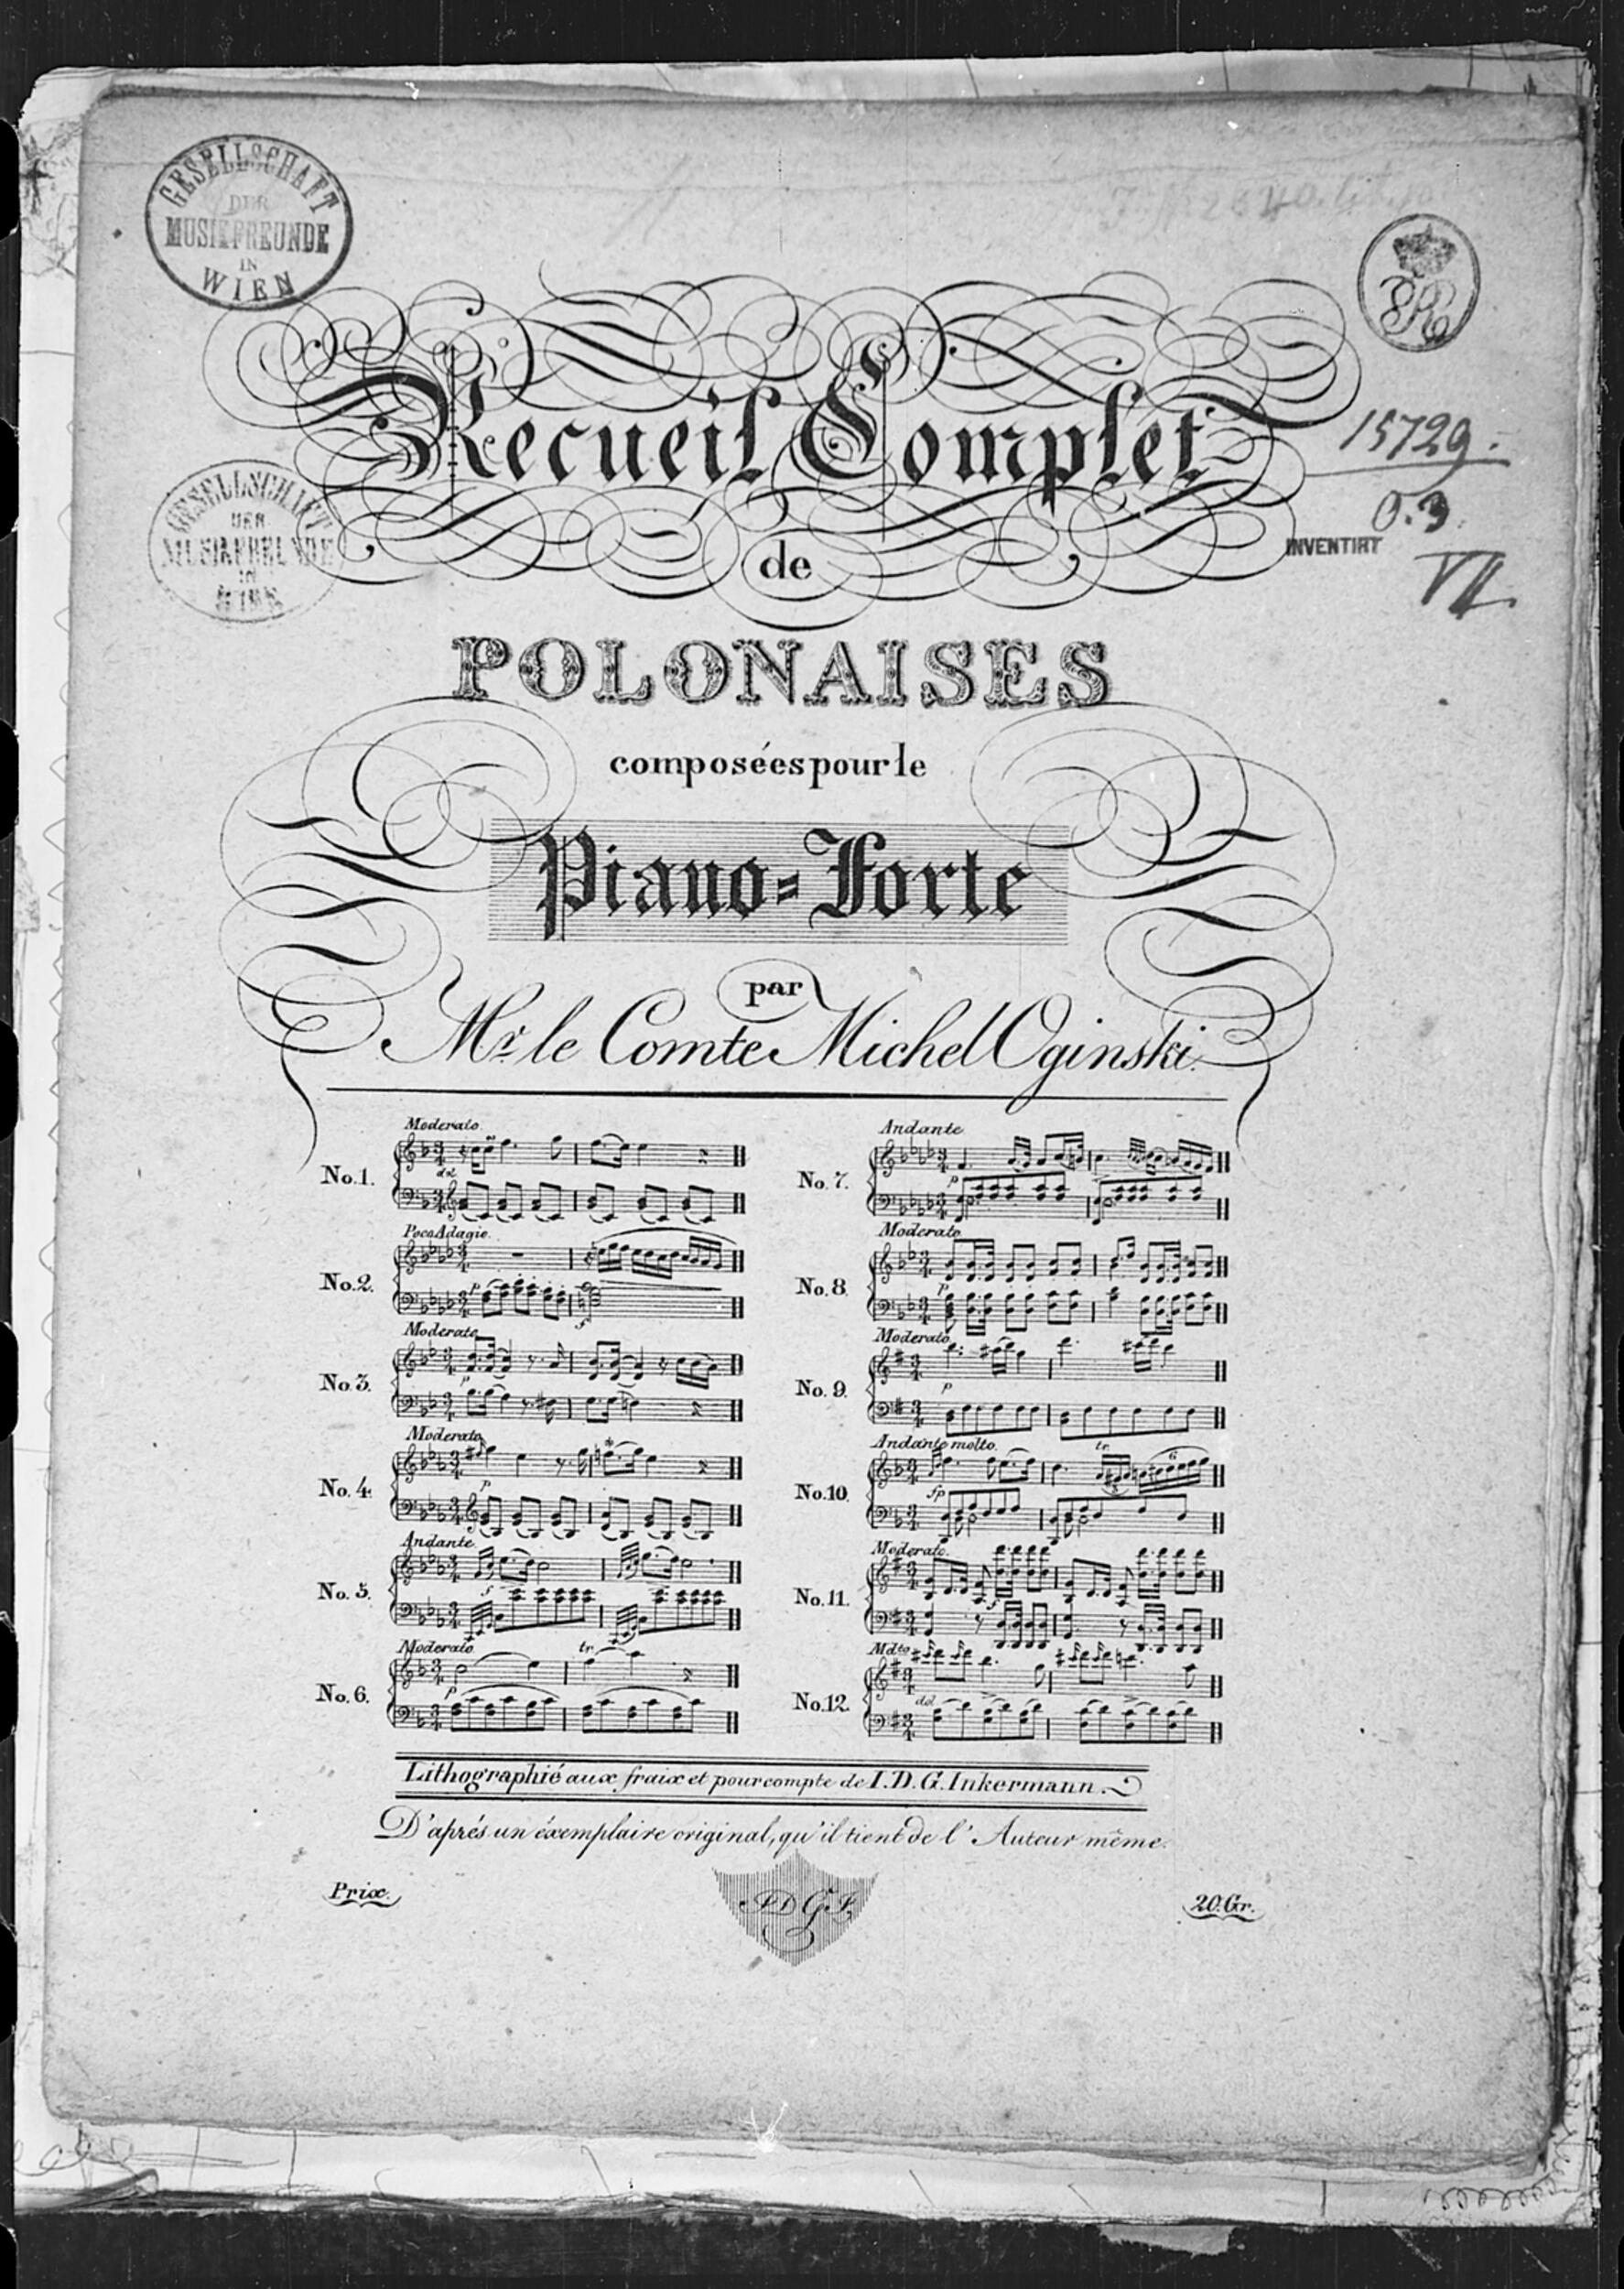 GESELLSCHAFT
DER
MUSIKFREUNDE
IN
WIEN
Recueil Complet
15729.
0.3
GESELLSCHAFT
DER
MUSIKFREUNDE
in
WIEN
INVENTIRT
VII
de
POLONAISES
composées pour le
Piano=Forte
par
Mr. le Comte Michel Oginski.
No.1. Moderato.
dol
No.2. Poco Adagio.
p
No.3. Moderato
p
No.4. Moderato
p
No.5. Andante
No.6. Moderato
tr.
p
No.7. Andante
p
No.8. Moderato
p
No.9. Moderato
p
No.10. Andante molto.
tr
fp
6
No.11. Moderato.
No.12. Mdto
dol
Lithographié aux fraix et pour compte de I.D.G.Inkermann.
D'aprés un éxemplaire original, qu'il tient de l'Auteur même.
Prix.
IDGI.
20.Gr.